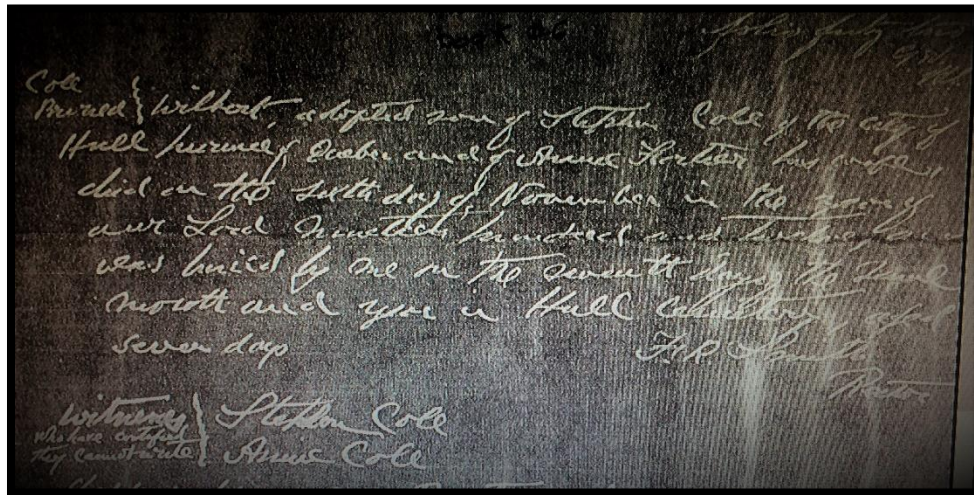 Cole
Buried } Wilbert, adopted son of Stephen Cole of the city of
Hull province of Quebec and of Annie his wife,
died on the sixth day of November in the year of
our Lord Nineteen hundred and twenty
was buried by me on the seventh day of the same
month and year in Hull Cemetery, aged
seven days
F. R. Smith
Rector.
Witnesses } Stephen Cole
who have certified
they cannot write } Annie Cole